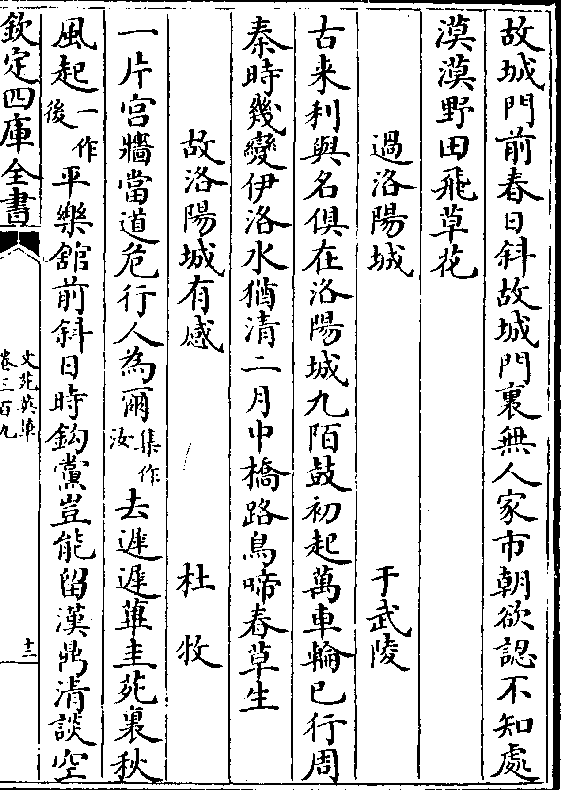 故城門前春日斜故城門裏無人家市朝欲認不知處
漠漠野田飛草花
過洛陽城 于武陵
古来利與名俱在洛陽城九陌鼓初起萬車輪已行周
秦時幾變伊洛水猶清二月中橋路鳥啼春草生
故洛陽城有感 杜牧
一片宫牆當道危行人為爾集作汝去遲遲蓽圭苑裏秋
風起一作後平樂館前斜日時鈎黨豈能留漢鼎清談空
欽定四庫全書
文苑英華
卷三百九
十三